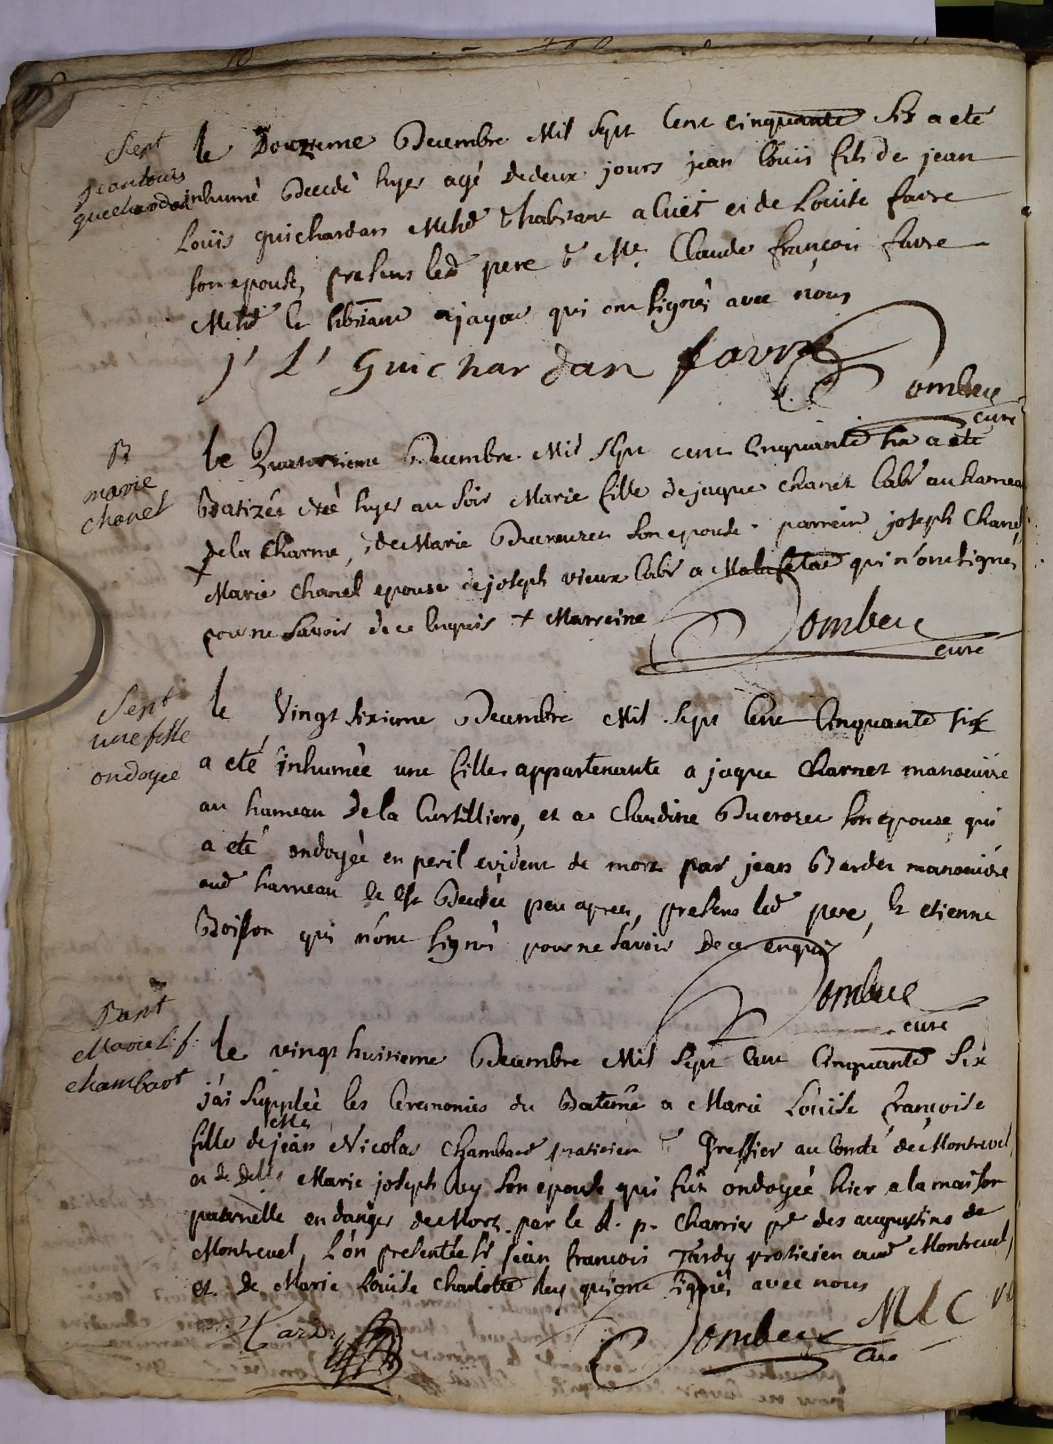 Sept
jean louis
guichardan
le Douzieme Decembre Mil Sept Cent cinquante Six a eté
inhumé Decedé hyer agé de deux jours jean Loüis fils de jean
Loüis guichardan Mchd habitant a Cuet et de Loüise favre
son epouse, presens led pere & Me Claude françois favre
Mchd et hbitant a jayat qui ont signés avec nous
j' L' Guichardan favre
Dombey
curé
B
marie
chanel
le Quatorzieme Decembre Mil Sept cent Cinquante six a eté
Batizée née hyer au soir Marie fille de jaque chanel labr au hameau
de la Charme, & de Marie Ducrozet son epouse. parrein joseph Chanel
+ Marie Chanel epouse de joseph vieux labr a Malafretaz qui n'ont signés
pour ne savoir de ce enquis + Marreine
Dombey
curé
Sept
une fille
ondoyee
le Vingt sixieme Decembre Mil Sept Cent Cinquante six
a eté inhumée une fille appartenante a jaque Charnet manoeuvre
au hameau de la Curtilliere, et a Claudine Ducrozet son epouse qui
a eté ondoyée en peril evident de mort par jean Bardet manoeuvre
aud hameau et est Decedée peu apres, presens led pere, et etienne
Boisson qui n'ont signés pour ne savoir de ce enquis
Dombey
curé
Bapt
Marie L: f:
chambart
le vingt huitieme Decembre Mil Sept Cent Cinquante Six
j'ai suppléé les Ceremonies du Bateme a Marie Loüise françoise
fille de Me jean Nicolas Chambard praticien & Greffier au Comté de Montrevel
et de Delle Marie joseph Rey son epouse qui fut ondoyée hier a la maison
paternelle en danger de Mort par le R. p. Charrier pre des augustins de
Montrevel, l'on presentée Sr jean françois Tardy praticien aud Montrevel,
et De Marie Loüise Charlotte Rey qui ont signés avec nous
Tardy
Dombey
curé
M L C